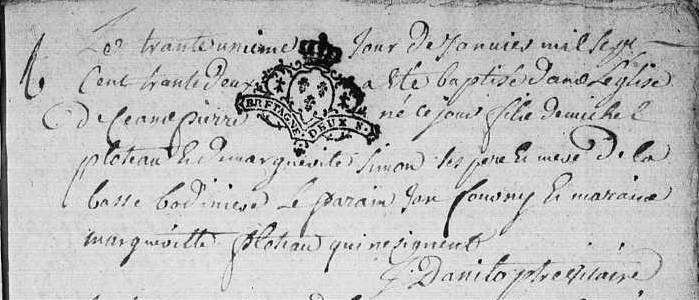 Le trante unieme jour de Janvier mil sept
cent trante deux a ete baptisé dans Leglise
de ceans pierre né ce jour fils de michel
BRETAGNE DEUX S.
ploteau et de margueritte Simon ses pere et mere de la
basse bodiniere Le parain Jan et maraine
margueritte ploteau qui ne signent
Danilo ptre vicaire